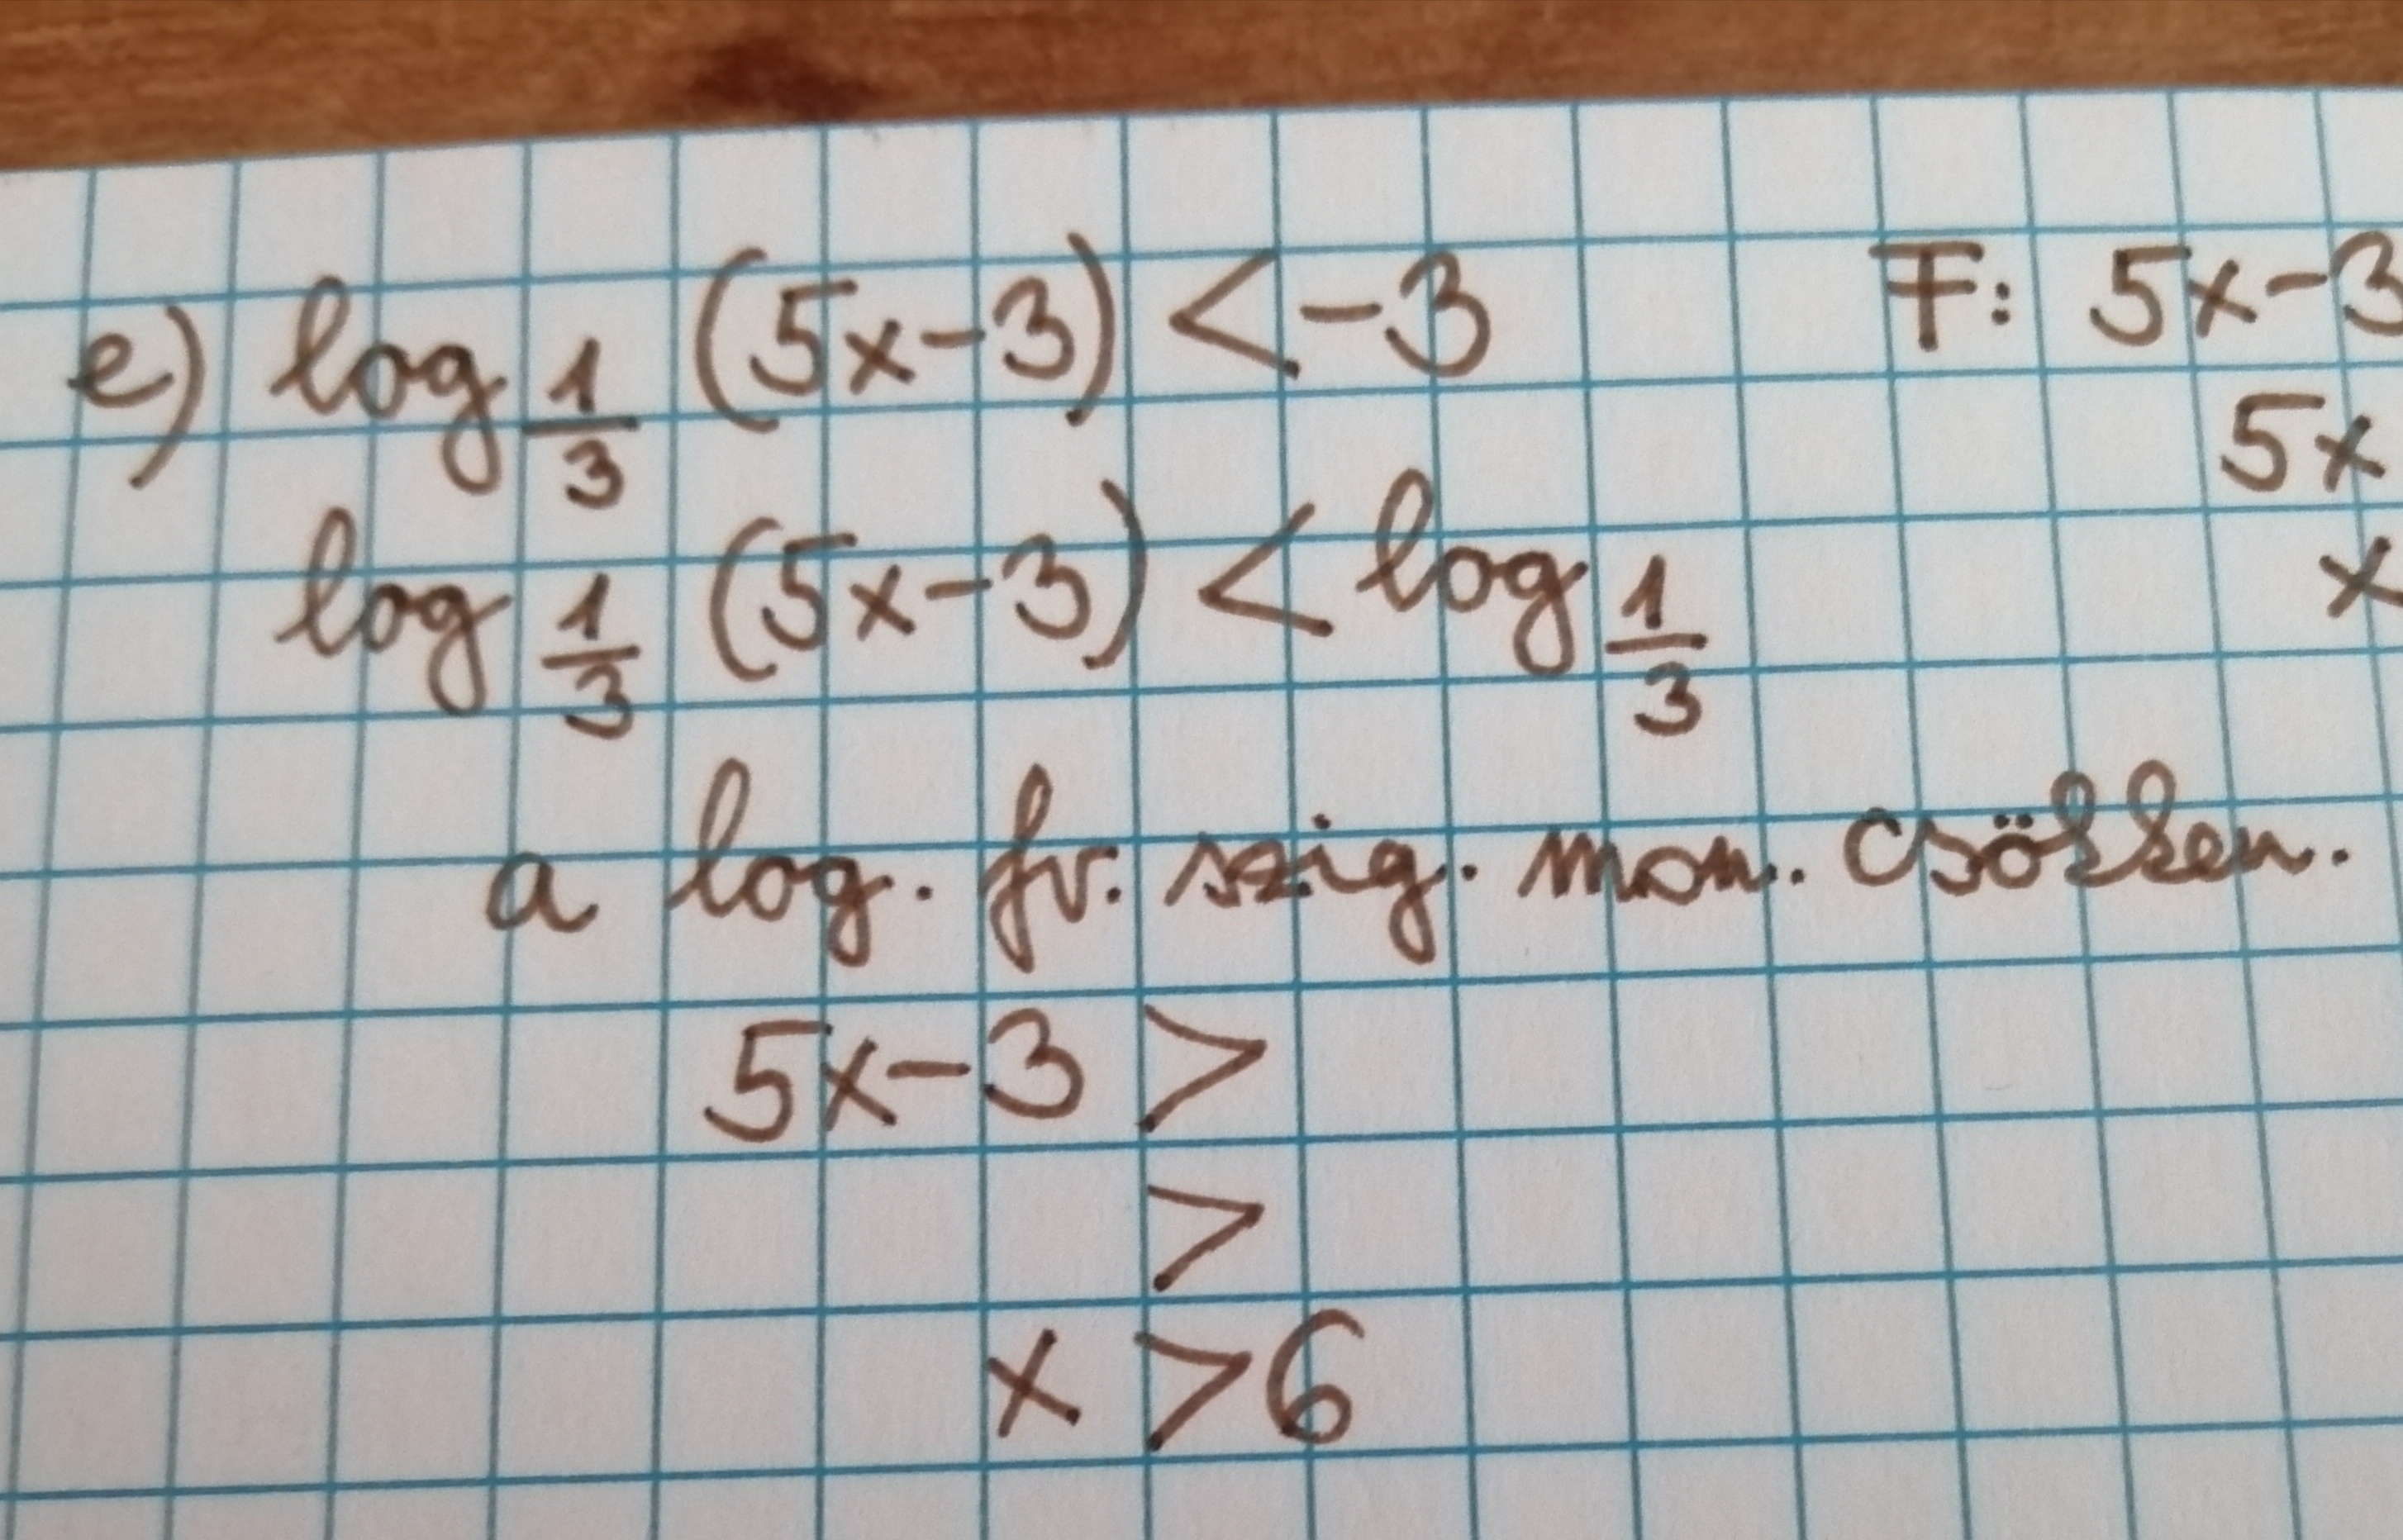 e) log 1/3 (5x-3) < -3 F: 5x-3
5x
log 1/3 (5x-3) < log 1/3 x
a log. fv. szig. mon. csökken.
5x-3 >
>
x > 6